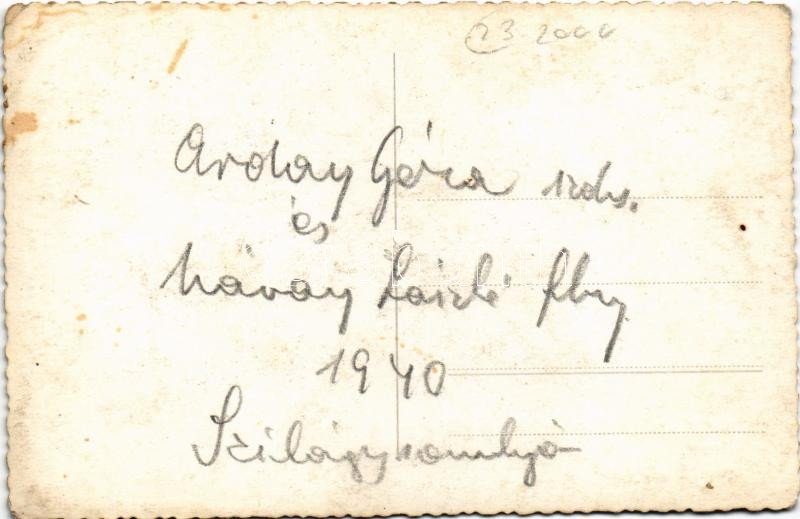 23 2000
Arday Géza
és
Návay László
1940
Szilágysomlyó